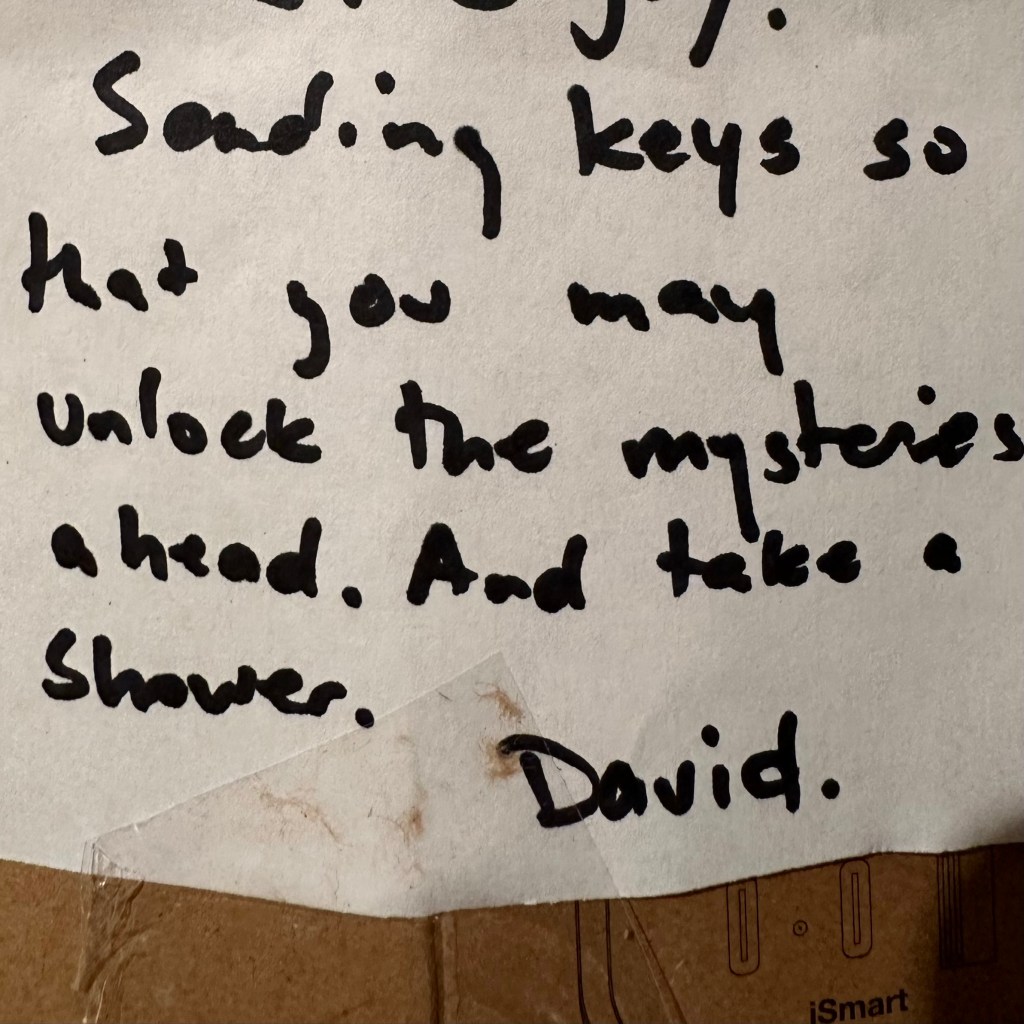 Sending keys so
that you may
unlock the mysteries
ahead. And take a
shower.
David.
iSmart